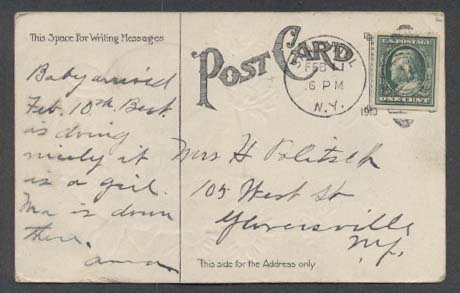 This Space For Writing Messages
POST CARD
FEB 11
6 PM
N.Y.
1910
U.S. POSTAGE
ONE CENT
Baby arrived
Feb. 10th. Bert
is doing
nicely it
is a girl.
Ma is down
there.
Anna
Mrs H
105 West St
Gloversville
N.Y.
This side for the Address only